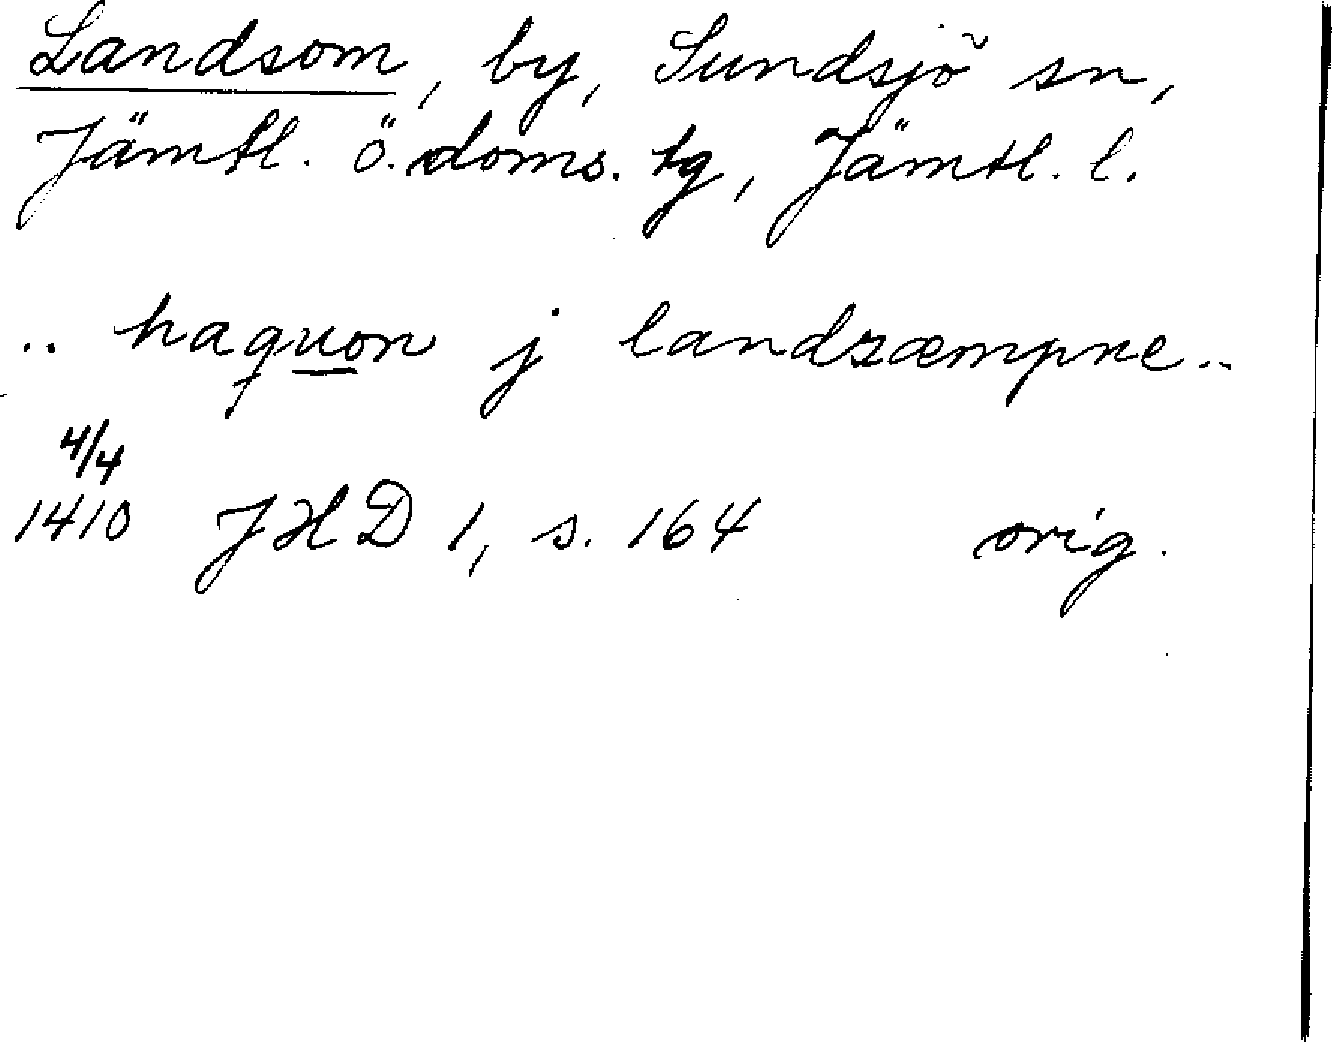 Landsom, by, Sundsjö sn,
Jämtl. ö. doms. tg, Jämtl. l.
.. haquon j landzæmpne ..
4/4
1410 JHD 1, s. 164 orig.